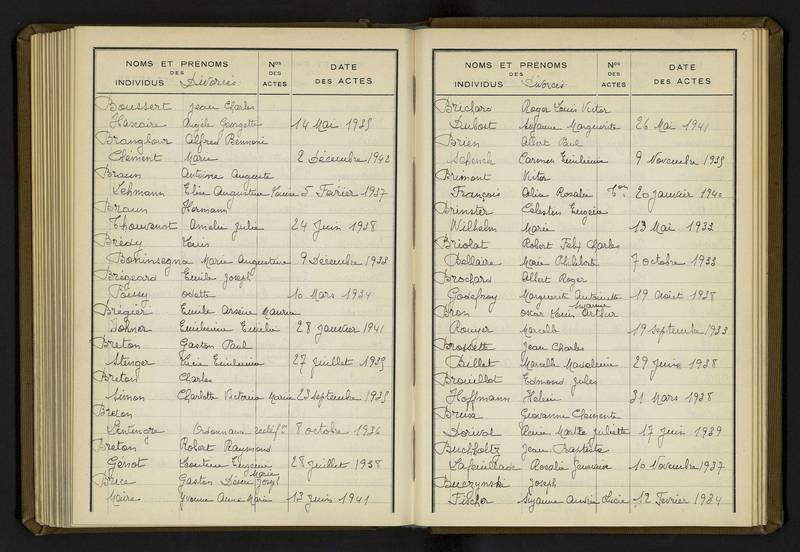 NOMS ET PRÉNOMS Nos DATE
DES
INDIVIDUS Divorcés DES ACTES DES ACTES
Boussert Jean Charles
Haxaire Angèle Georgette 14 Mai 1935
Branglour Alfred
Clément Marie 2 Décembre 1942
Braun Antoine Auguste
Lehmann Elise Augustine Louise 5 Février 1937
Braun Hermann
Thouvenot Amélie Julie 24 Juin 1938
Brédy Louis
Boninsegna Marie Augustine 9 Décembre 1933
Brégeard Emile Joseph
Poissy Odette 10 Mars 1934
Brégier Emile Arsène Maurice
Dohner Emilienne Emélie 28 Janvier 1941
Breton Gaston Paul
Stenger Lucie Emilienne 27 Juillet 1935
Breton Charles
Simon Charlotte Victorine Marie 23 Septembre 1935
Breton
8 octobre 1936
Breton Robert Raymond
Génot Léontine Eugénie 28 Juillet 1938
Marie
Brice Gaston Désiré Joseph
Maire Yvonne Anne Marie 13 Juin 1941
NOMS ET PRÉNOMS Nos DATE
DES
INDIVIDUS Divorcés DES ACTES DES ACTES
Brichard Roger Louis Victor
Dubost Suzanne Marguerite 26 Mai 1941
Brien Albert Paul
Schenck Carmen Emilienne 9 Novembre 1935
Brimont Victor
François Célia Rosalie 20 Janvier 1940
Brinster Célestin Eugène
Wilhelm Marie 13 Mai 1933
Briolat Robert Félix Charles
Dellaire Marie Philiberte 7 octobre 1933
Brochard Albert Roger
Godefroy Marguerite Antoinette 19 Août 1938
Suzanne
Bron Oscar Louis Arthur
Rouyer Marcelle 19 Septembre 1933
Brossette Jean Charles
Dullet Marcelle Madeleine 29 Juin 1938
Brouillot Edmond Jules
Hoffmann Hélène 31 Mars 1938
Brusa Giovanne Clémente
Dorival Marthe Juliette 17 Juin 1939
Bucholtz Jean Baptiste
Lafeuillade Rosalie 10 Novembre 1937
Buczynski Joseph
Fischer Suzanne Lucie 12 Février 1934